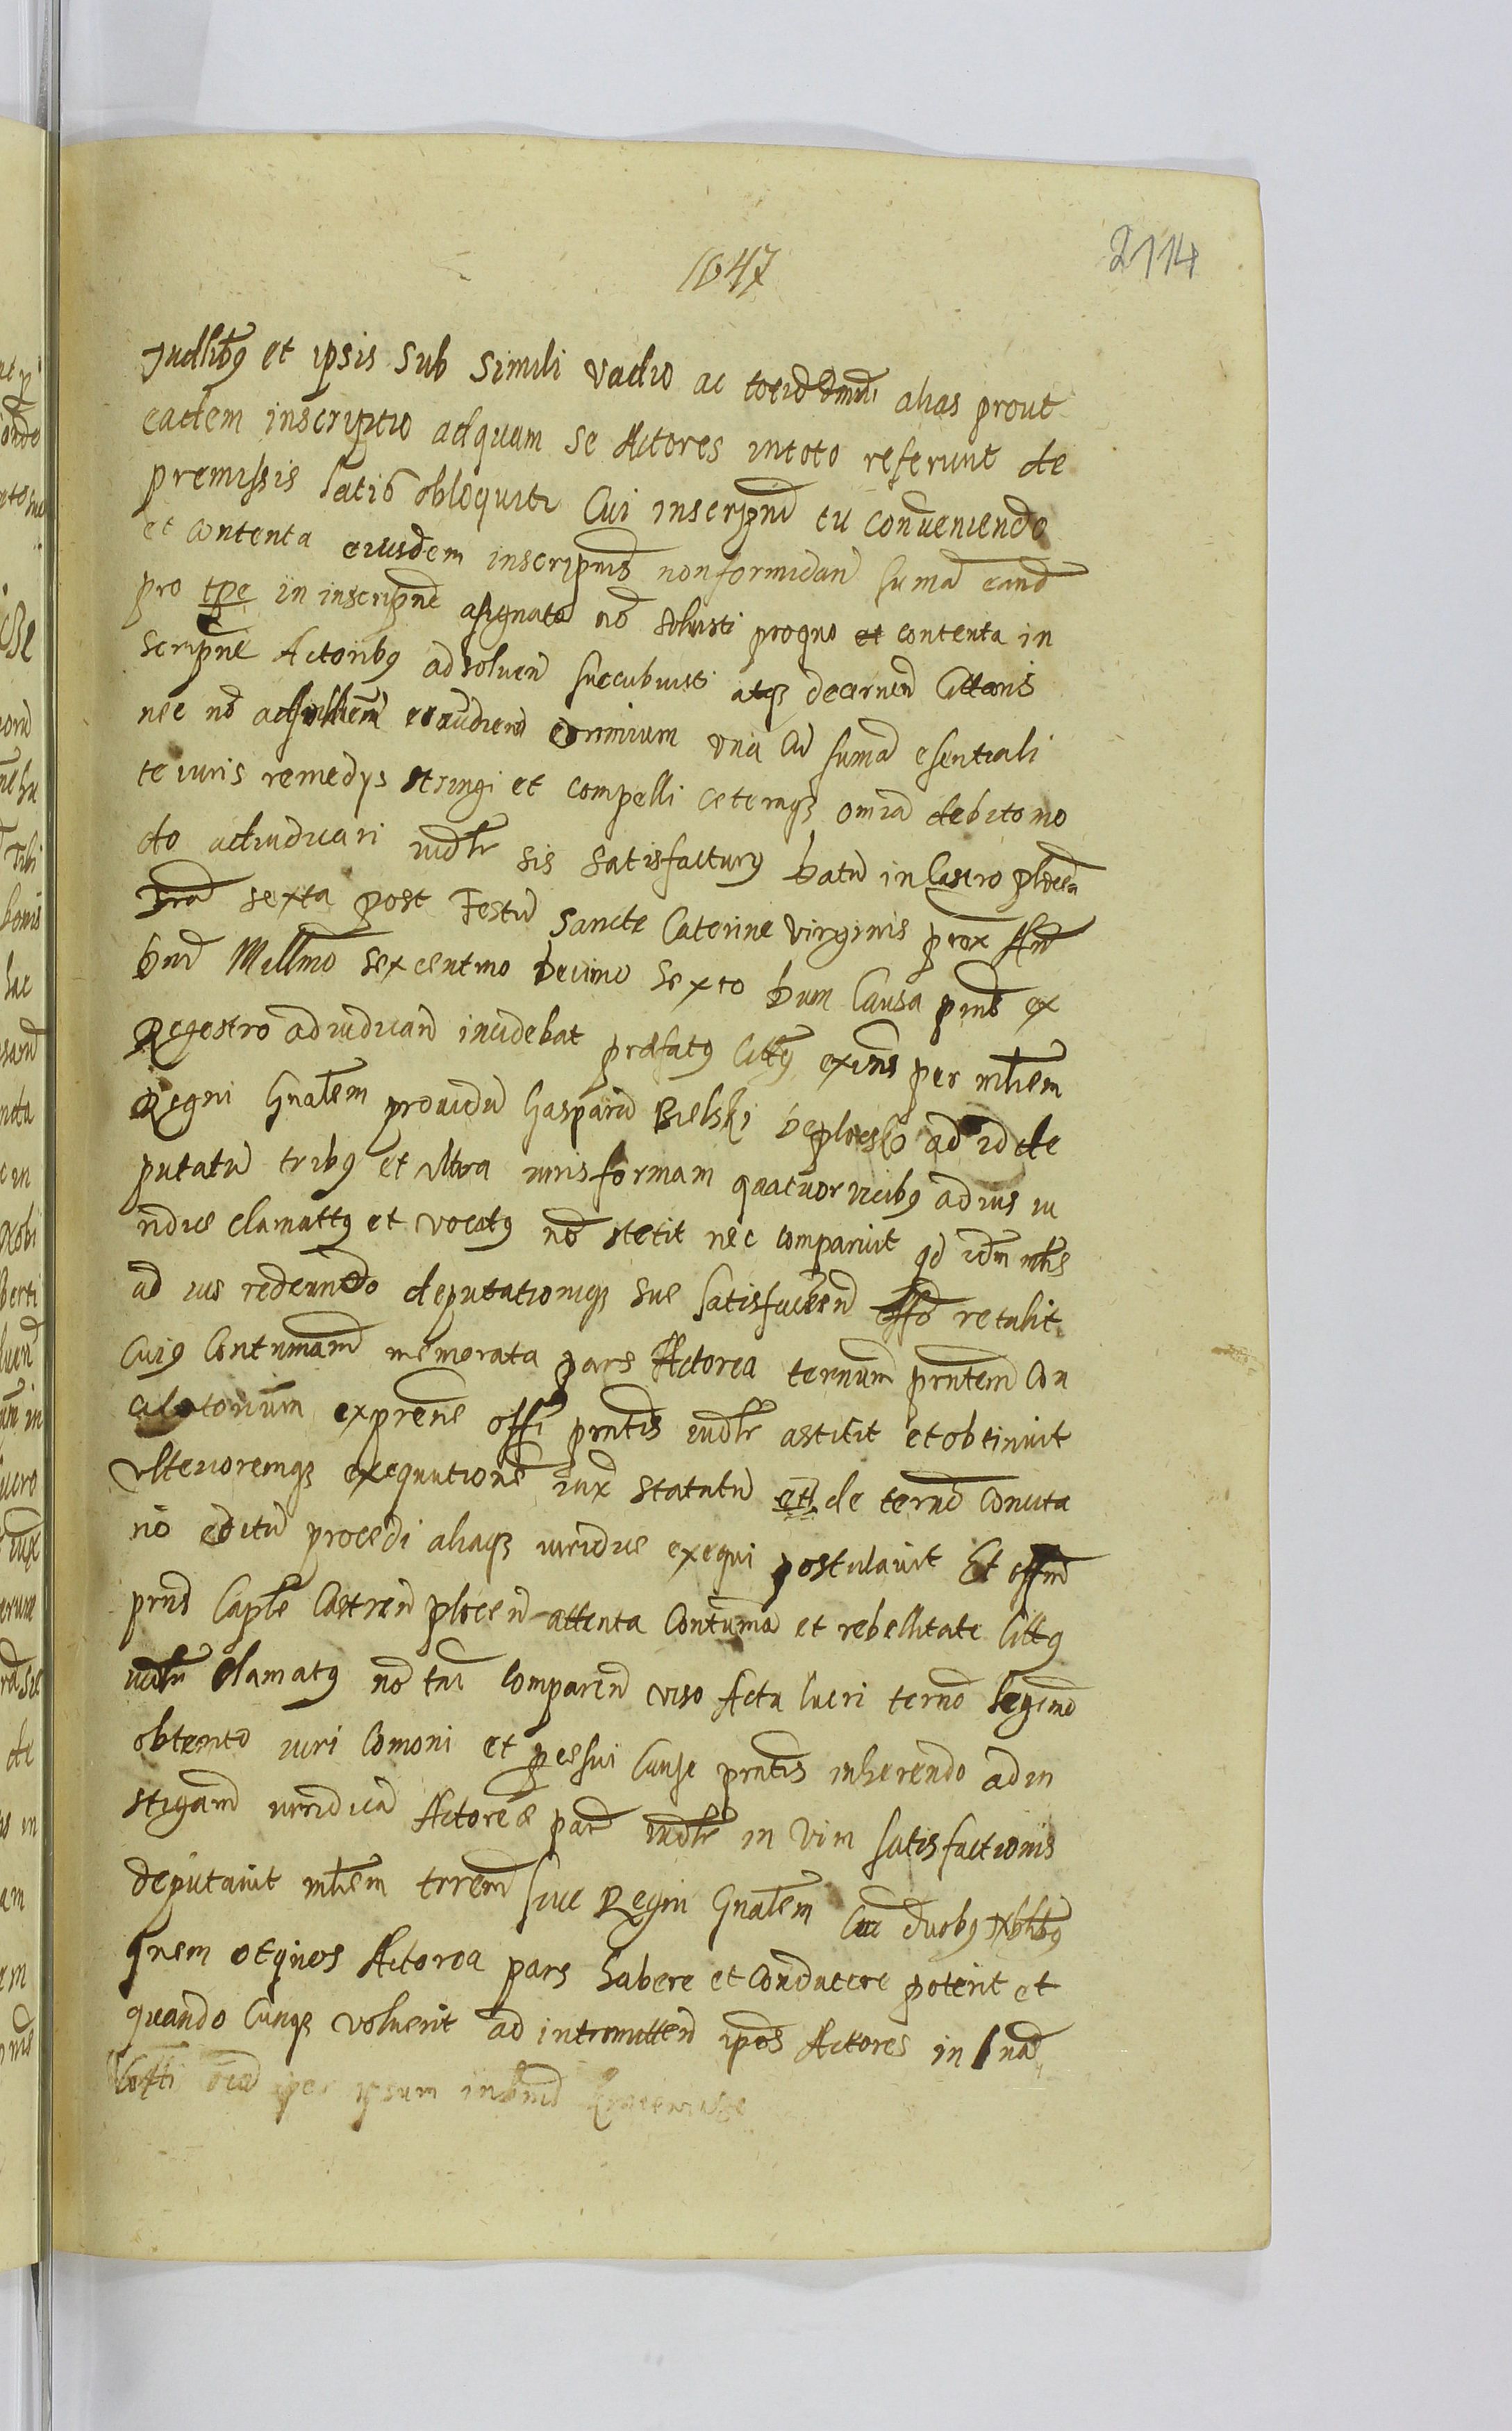 1647
2114
Judlibꝰ et ipsis sub simili vadio ac toties damni alias prout
eadem inscriptio ad quam se Actores in toto referunt de
premissis latiꝰ obloquitr Cui inscripni tu contraveniendo
et contenta eiusdem inscripnis non formidan sumā eand
pro tpe in inscripne assignato nō solvisti pro quo et contenta in
scripne Actoribꝰ ad solven succubuisti atqꝫ decernen Citteris
nec nō exaudien eorum una cū sumā essentiali
te iuris remedys stringi et compelli ceteraqꝫ omia debito mo
do adiudicari iudlr sis satisfacturꝰ Datū in Castro plocen
Fria sexta post Festū Sancte Caterine Virginis prox Año
Dni Millmo sexcentmo Decimo Sexto Dum Causa pns ex
Regestro adiudican incidebat præfatꝰ Cittꝰ exīns per mlrem
Regni Gnalem providū Gasparū Bielski de plocsko ad id de
putatū tribꝰ et ultra iuris formam quatuor vicibꝰ ad ius iu
ridice clamattꝰ et vocatꝰ nō stetit nec comparuit qd idm mlris
ad ius redeundo deputationiqꝫ sue satisfaciend offo retulit
Cuiꝰ Contumam memorata pars Actorea ternum prntem Con
dictorium expresse offi prntis iudlr astitit et obtinuit
Ulterioremqꝫ exequutionē iux statutū de ternō Convicta
nō editū procedi aliaqꝫ iuridice exequi postulavit Et offm
prns Caple Castren plocen attenta Contuma et rebellitate Cittꝰ
iudlr clamatꝰ nō tni comparen viso Actu lucri ternō legimō
obtento iuri Comoni et pcessui Cause prntis inherendo ad in
stigam iuridicā Actoree par iudlr in vim satisfactionis
deputavit mlrem trrem sive Regni Gnalem Cū duobꝰ Nblibꝰ
quem et quos Actorea pars habere et conducere poterit et
quando Cunqꝫ voluerit ad intromitten ipos Actores in bna
Citti per ipsum in